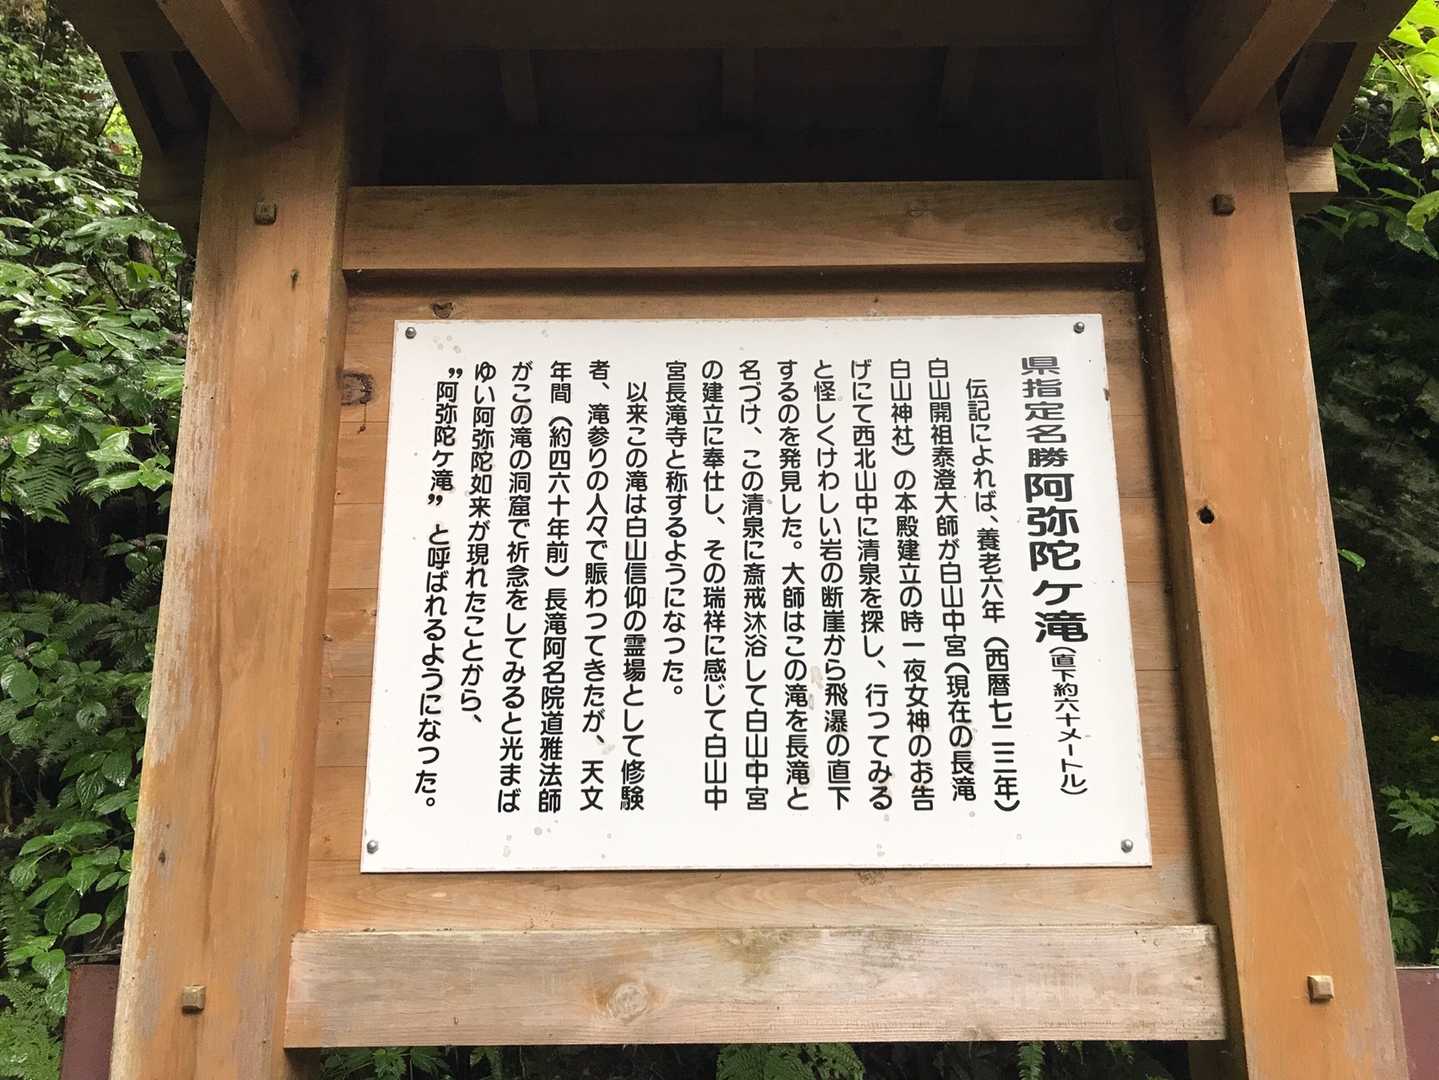 県指定名勝阿弥陀ケ滝(直下約六十メートル)
伝記によれば、養老六年(西暦七二三年)
白山開祖泰澄大師が白山中宮(現在の長滝
白山神社)の本殿建立の時一夜女神のお告
げにて西北山中に清泉を探し、行つてみる
と怪しくけわしい岩の断崖から飛瀑の直下
するのを発見した。大師はこの滝を長滝と
名づけ、この清泉に斎戒沐浴して白山中宮
の建立に奉仕し、その瑞祥に感じて白山中
宮長滝寺と称するようになつた。
以来この滝は白山信仰の霊場として修験
者、滝参りの人々で賑わつてきたが、天文
年間(約四六十年前)長滝阿名院道雅法師
がこの滝の洞窟で祈念をしてみると光まば
ゆい阿弥陀如来が現れたことから、
”阿弥陀ケ滝”と呼ばれるようになつた。